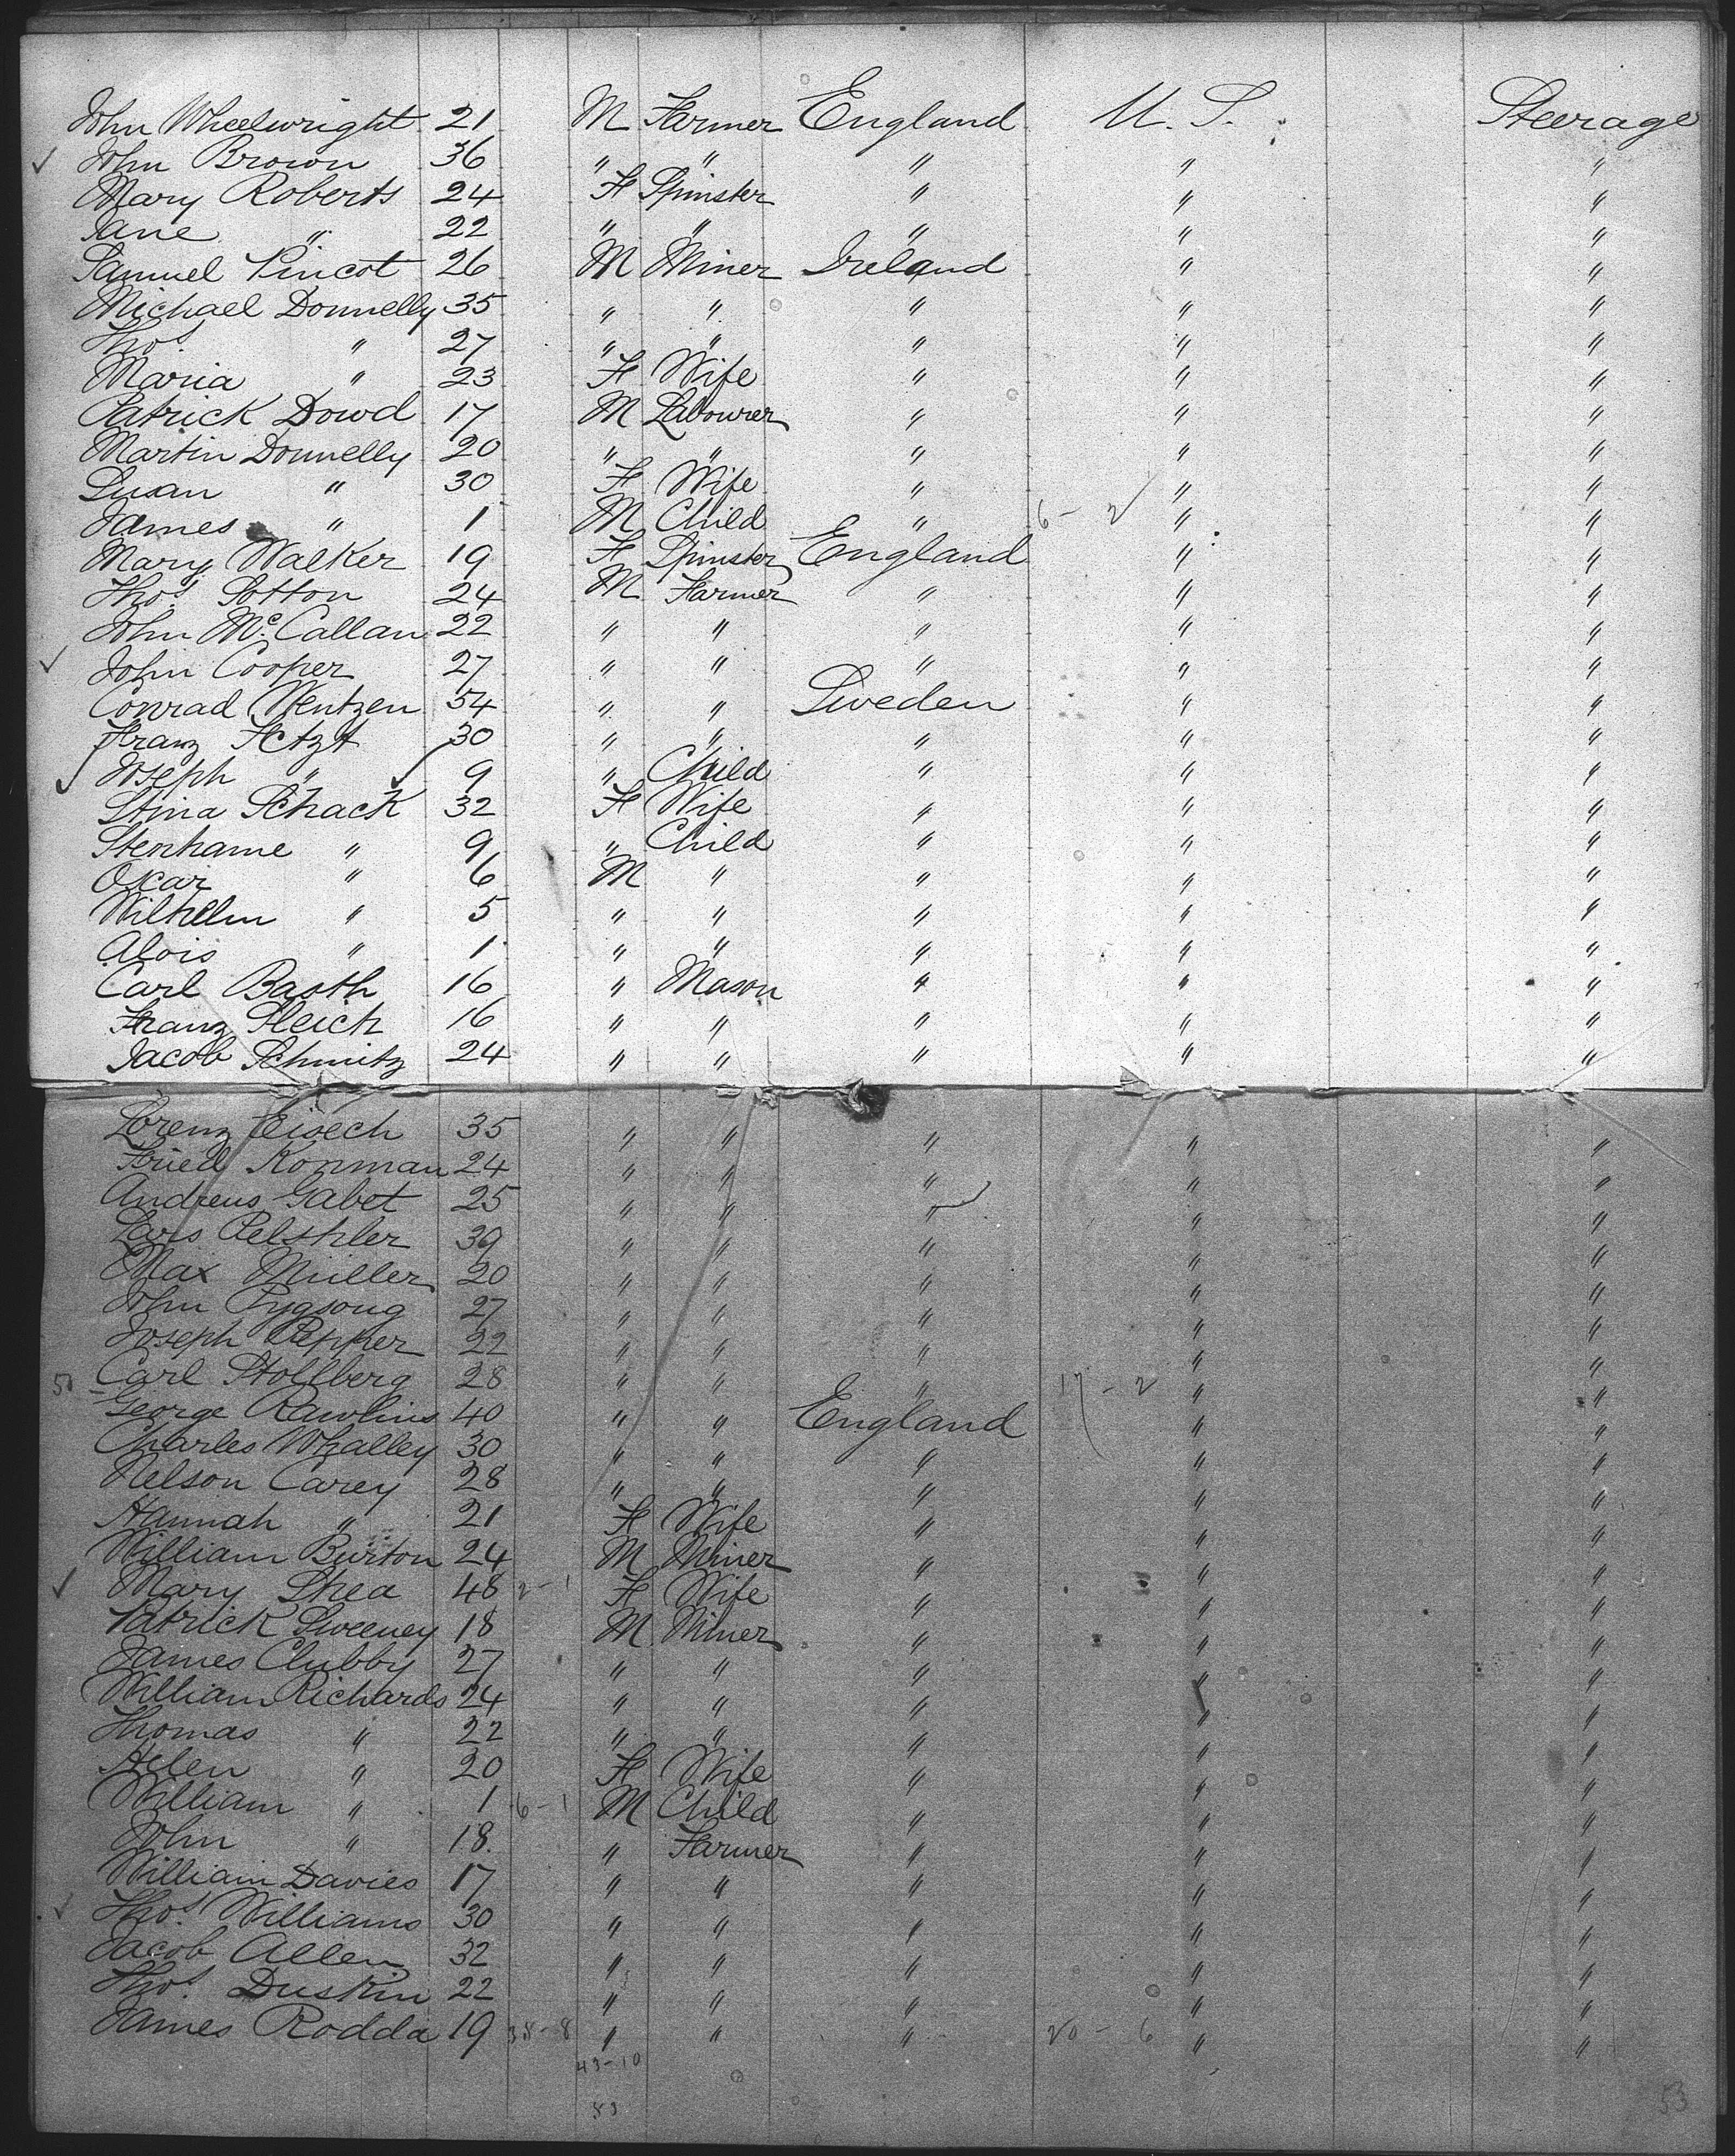 John Wheelwright 21 M Farmer England U.S. Steerage
John Brown 36 " " " " "
Mary Roberts 24 F Spinster " " "
Jane " 22 " " " " "
Samuel Pincot 26 M Miner Ireland " "
Michael Donnelly 35 " " " " "
Thos. " 27 " " " " "
Maria " 23 F Wife " " "
Patrick Dowd 17 M Labourer " " "
Martin Donnelly 20 " " " " "
Susan " 30 F Wife " " "
James " 1 M Child " 6 - 2 " "
Mary Walker 19 F Spinster England " "
Thos. Sotton 24 M Farmer " " "
John McCallan 22 " " " " "
John Cooper 27 " " " " "
Conrad Wentzen 54 " " Sweden " "
Franz Fetzt 30 " " " " "
Joseph " 9 " Child " " "
Stina Schack 32 F Wife " " "
Stenhame " 9 " Child " " "
Oscar " 6 M " " " "
Wilhelm " 5 " " " " "
Alois " 1 " " " " "
Carl Basth 16 " Mason " " "
Franz Fleich 16 " " " " "
Jacob Schmitz 24 " " " " "
Lorenz Eisech 35 " " " " "
Fried Konman 24 " " " " "
Andreus Gabot 25 " " " " "
Lars 39 " " " " "
Max Müller 20 " " " " "
John 27 " " " " "
Joseph Pepper 22 " " " " "
Carl Stollberg 28 " " " 17 - 2 " "
George Rawlins 40 " " England " "
Charles Whalley 30 " " " " "
Nelson Carey 28 " " " " "
Hannah " 21 F Wife " " "
William Burton 24 M Miner " " "
Mary Shea 48 2-1 F Wife " " "
Patrick Sweeney 18 M Miner " " "
James Clubby 27 " " " " "
William Richards 24 " " " " "
Thomas " 22 " " " " "
Helen " 20 F Wife " " "
William " 1 6-1 M Child " " "
John " 18 " Farmer " " "
William Davies 17 " " " " "
Thos. Williams 30 " " " " "
Jacob Allen 32 " " " " "
Thos. Duskin 22 " " " " "
James Rodda 19 38-8 " " " 20 - 6 " "
43-10
53
53